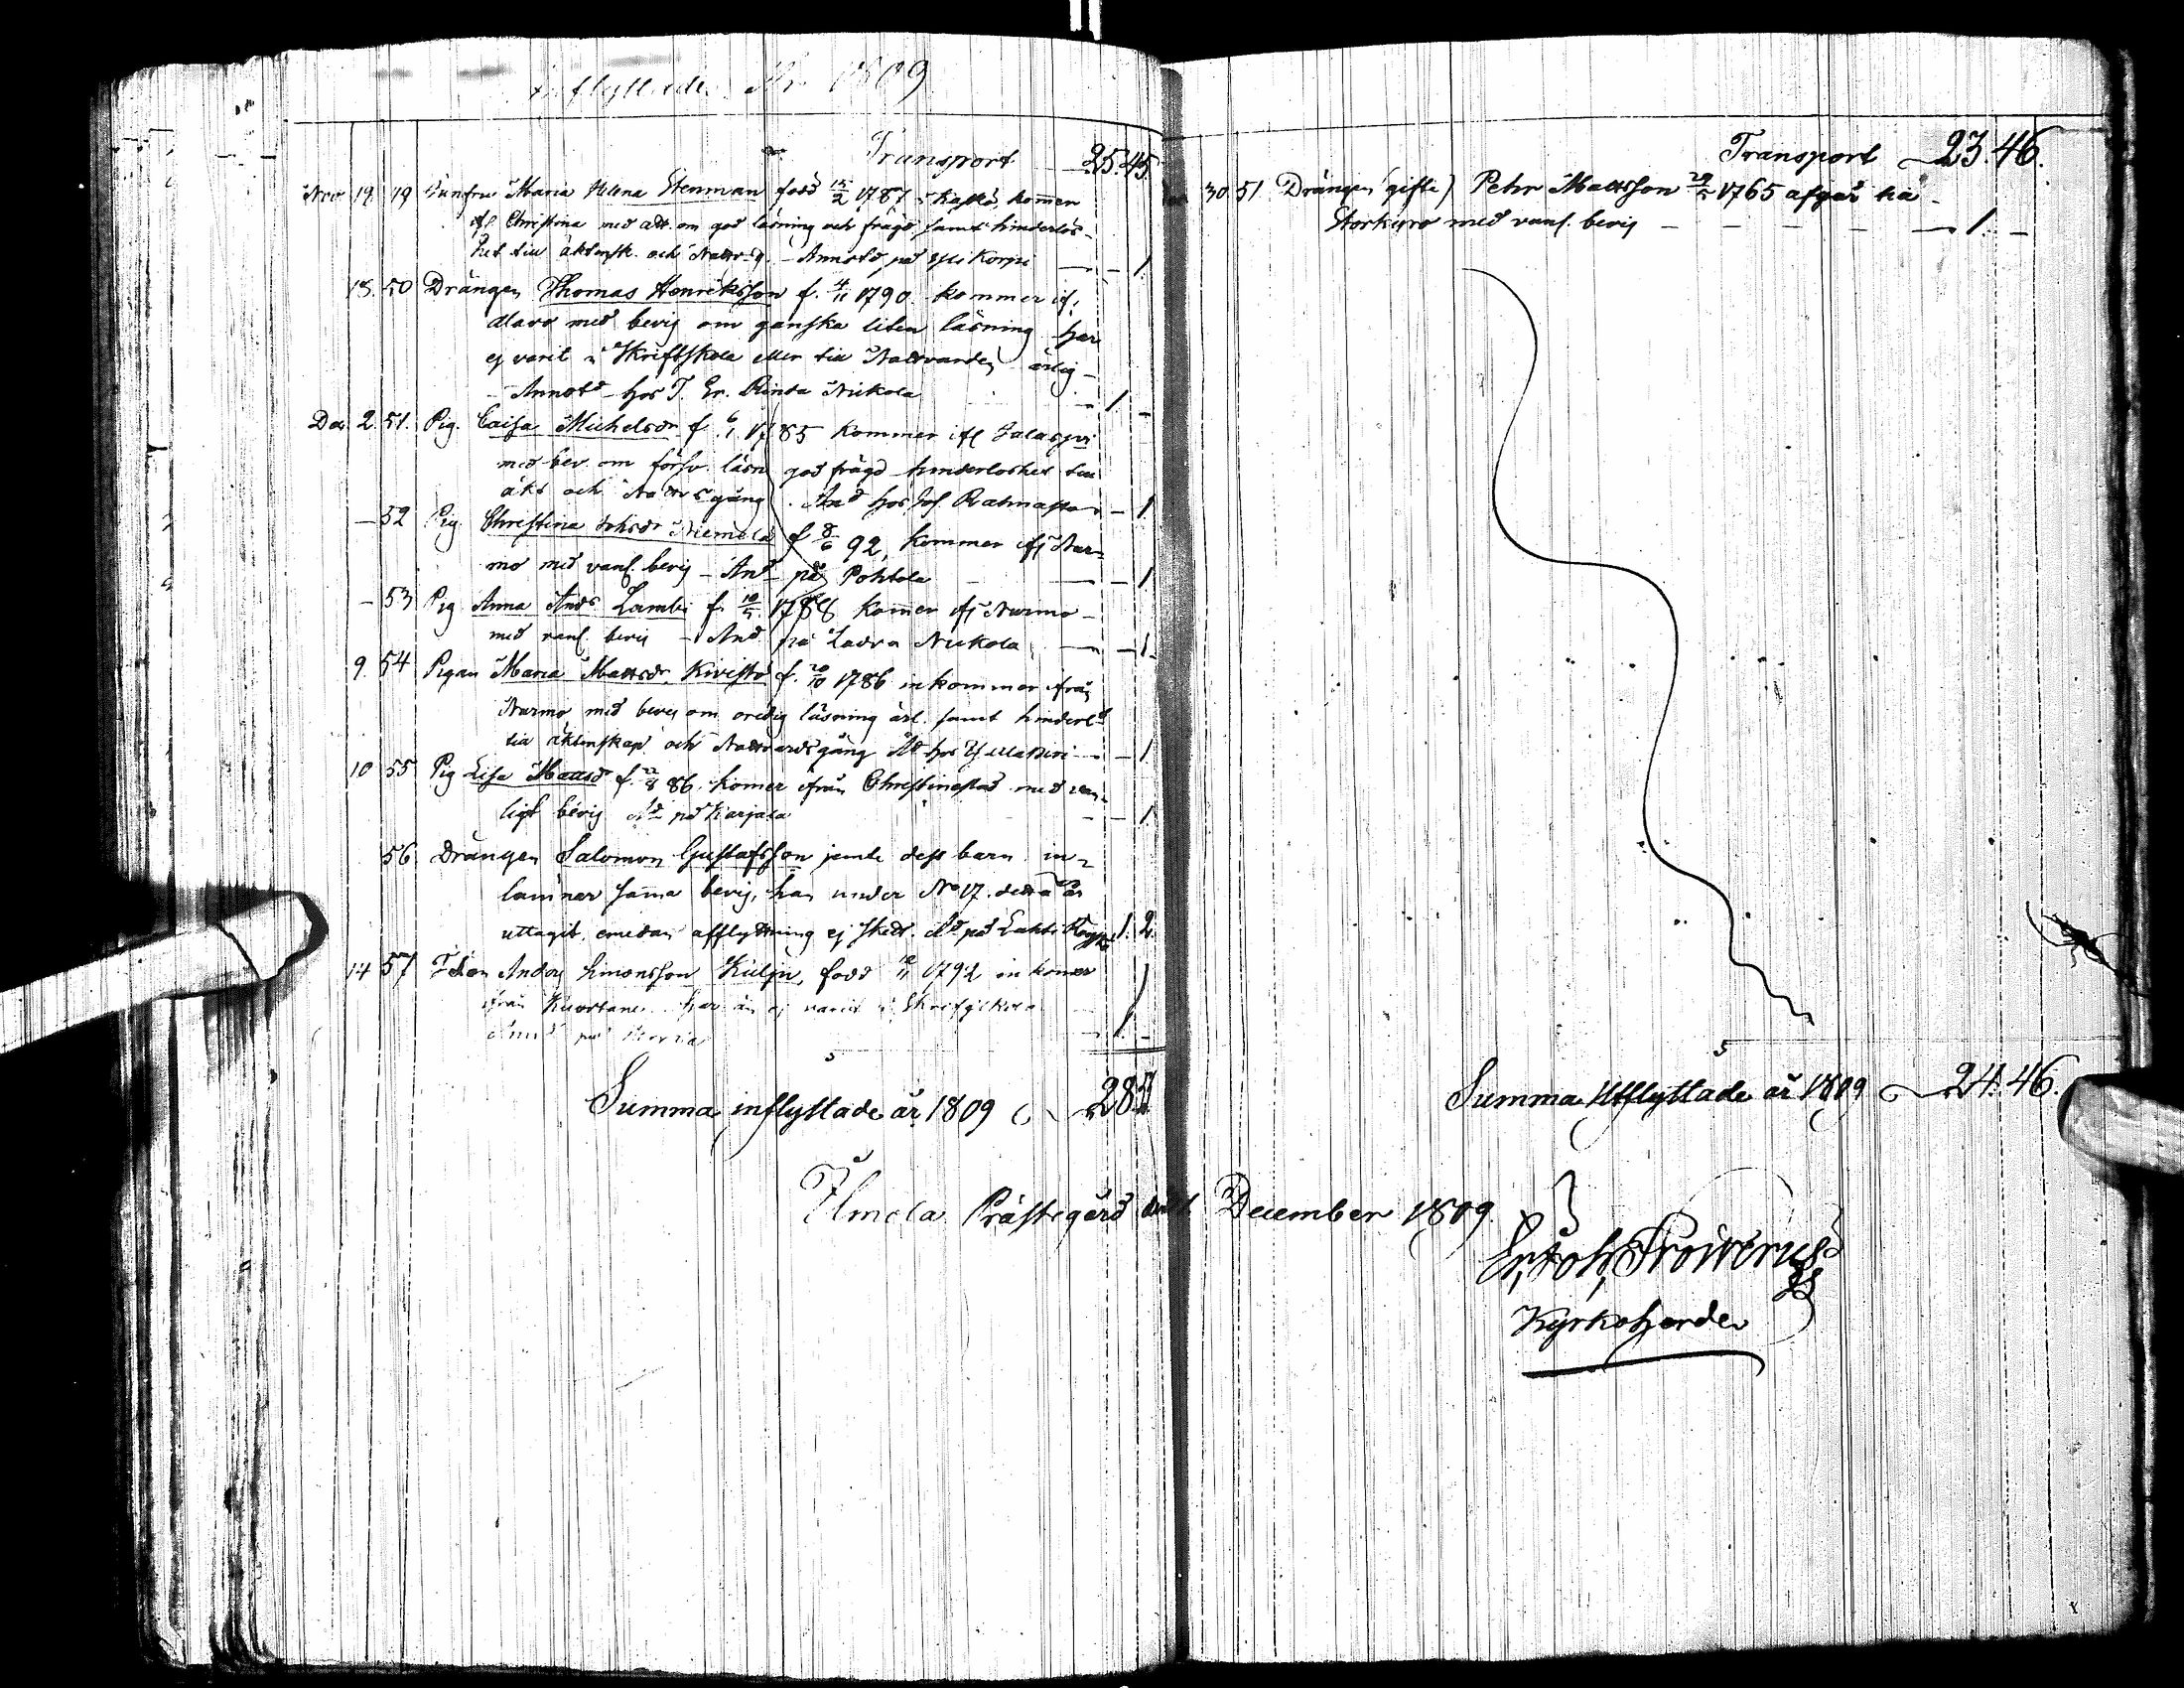 Inflyttade År 1809
Transport 25. 45
Nov 19. 49 Junfru Maria Helena Stenman född 1787 i Kaskö, kommer
ifl Christina med att. om god läsning och frägd samt hinderlös-
het till äktensk. och Nattv.g. - Annotd på Yli Korpi - 1.
18. 50 Drängen Thomas Henriksson f. 4/11 1790 kommer if.
Alavo med bevis om ganska liten läsning har
ej varit i Skriftskola eller till Nattvarden ärlig -
- Annotd hos T. Er. Rinta Nickola - 1. -
Dec 2. 51. Pig. Caisa Michelsdr f. 6/1 1785 kommer ifl Jalasjvi
med bev. om försv. läsn god frägd hinderlöshet till
äkt och Nattvsgång. And hos Joh. - 1.
- 52 Pig. Christina Johsdr Niemelä f 8/6 92, kommer if Nur-
mo med vanl. bevis - And på Pohtola - 1
- 53 Pig Anna Andsdr Lambi f. 10/5 1788 kommer if Nurmo -
med vanl. bevis - And på Ladva Nickola - 1.
9. 54 Pigan Maria Mattsdr Kivistö f. 20/10 1786 inkommer ifrån
Nurmo med bevis om oredig läsning ärl. samt hinderlöst
till äktenskap och Nattvardsgång Ad hos - 1.
10 55 Pig Lisa Mattsdr f. 86. komer ifrån Christinestad med van-
ligt bevis Ad på Karjala - 1.
56. Drängen Salomon Gustafsson jemte dess barn in-
lämnar samma bevis, han under No 17. detta år
uttagit, emedan afflyttning ej skedt. Ad på 1. 2.
14 57 Anders Simonsson född 1792 in komer
ifrån Kuortane. har än ej varit i Skriftskola
Annd på 1. -
Summa inflyttade år 1809 28.
Ilmola Prästegård den December 1809.
Transport 23. 46.
30. 51. Drängen (gifte) Pehr Mattsson 1765 afgår till
Storkyro med vanl. bevis - 1. -
Summa Utflyttade år 1809 24. 46.
Er. Joh. Frosterus
Kyrkoherde